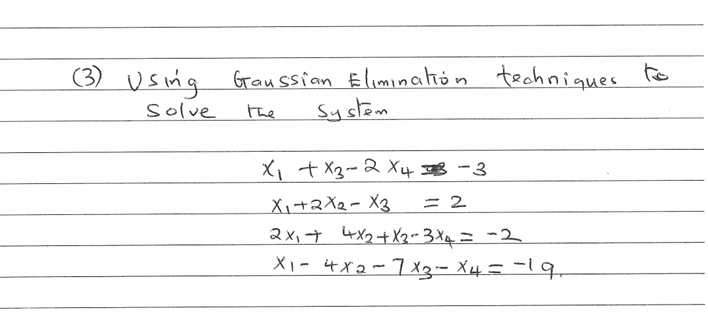 (3) Using Gaussian Elimination techniques to
Solve the System
x₁ + x₃ - 2x₄ = -3
x₁ + 2x₂ - x₃ = 2
2x₁ + 4x₂ + x₃ - 3x₄ = -2
x₁ - 4x₂ - 7x₃ - x₄ = -19.